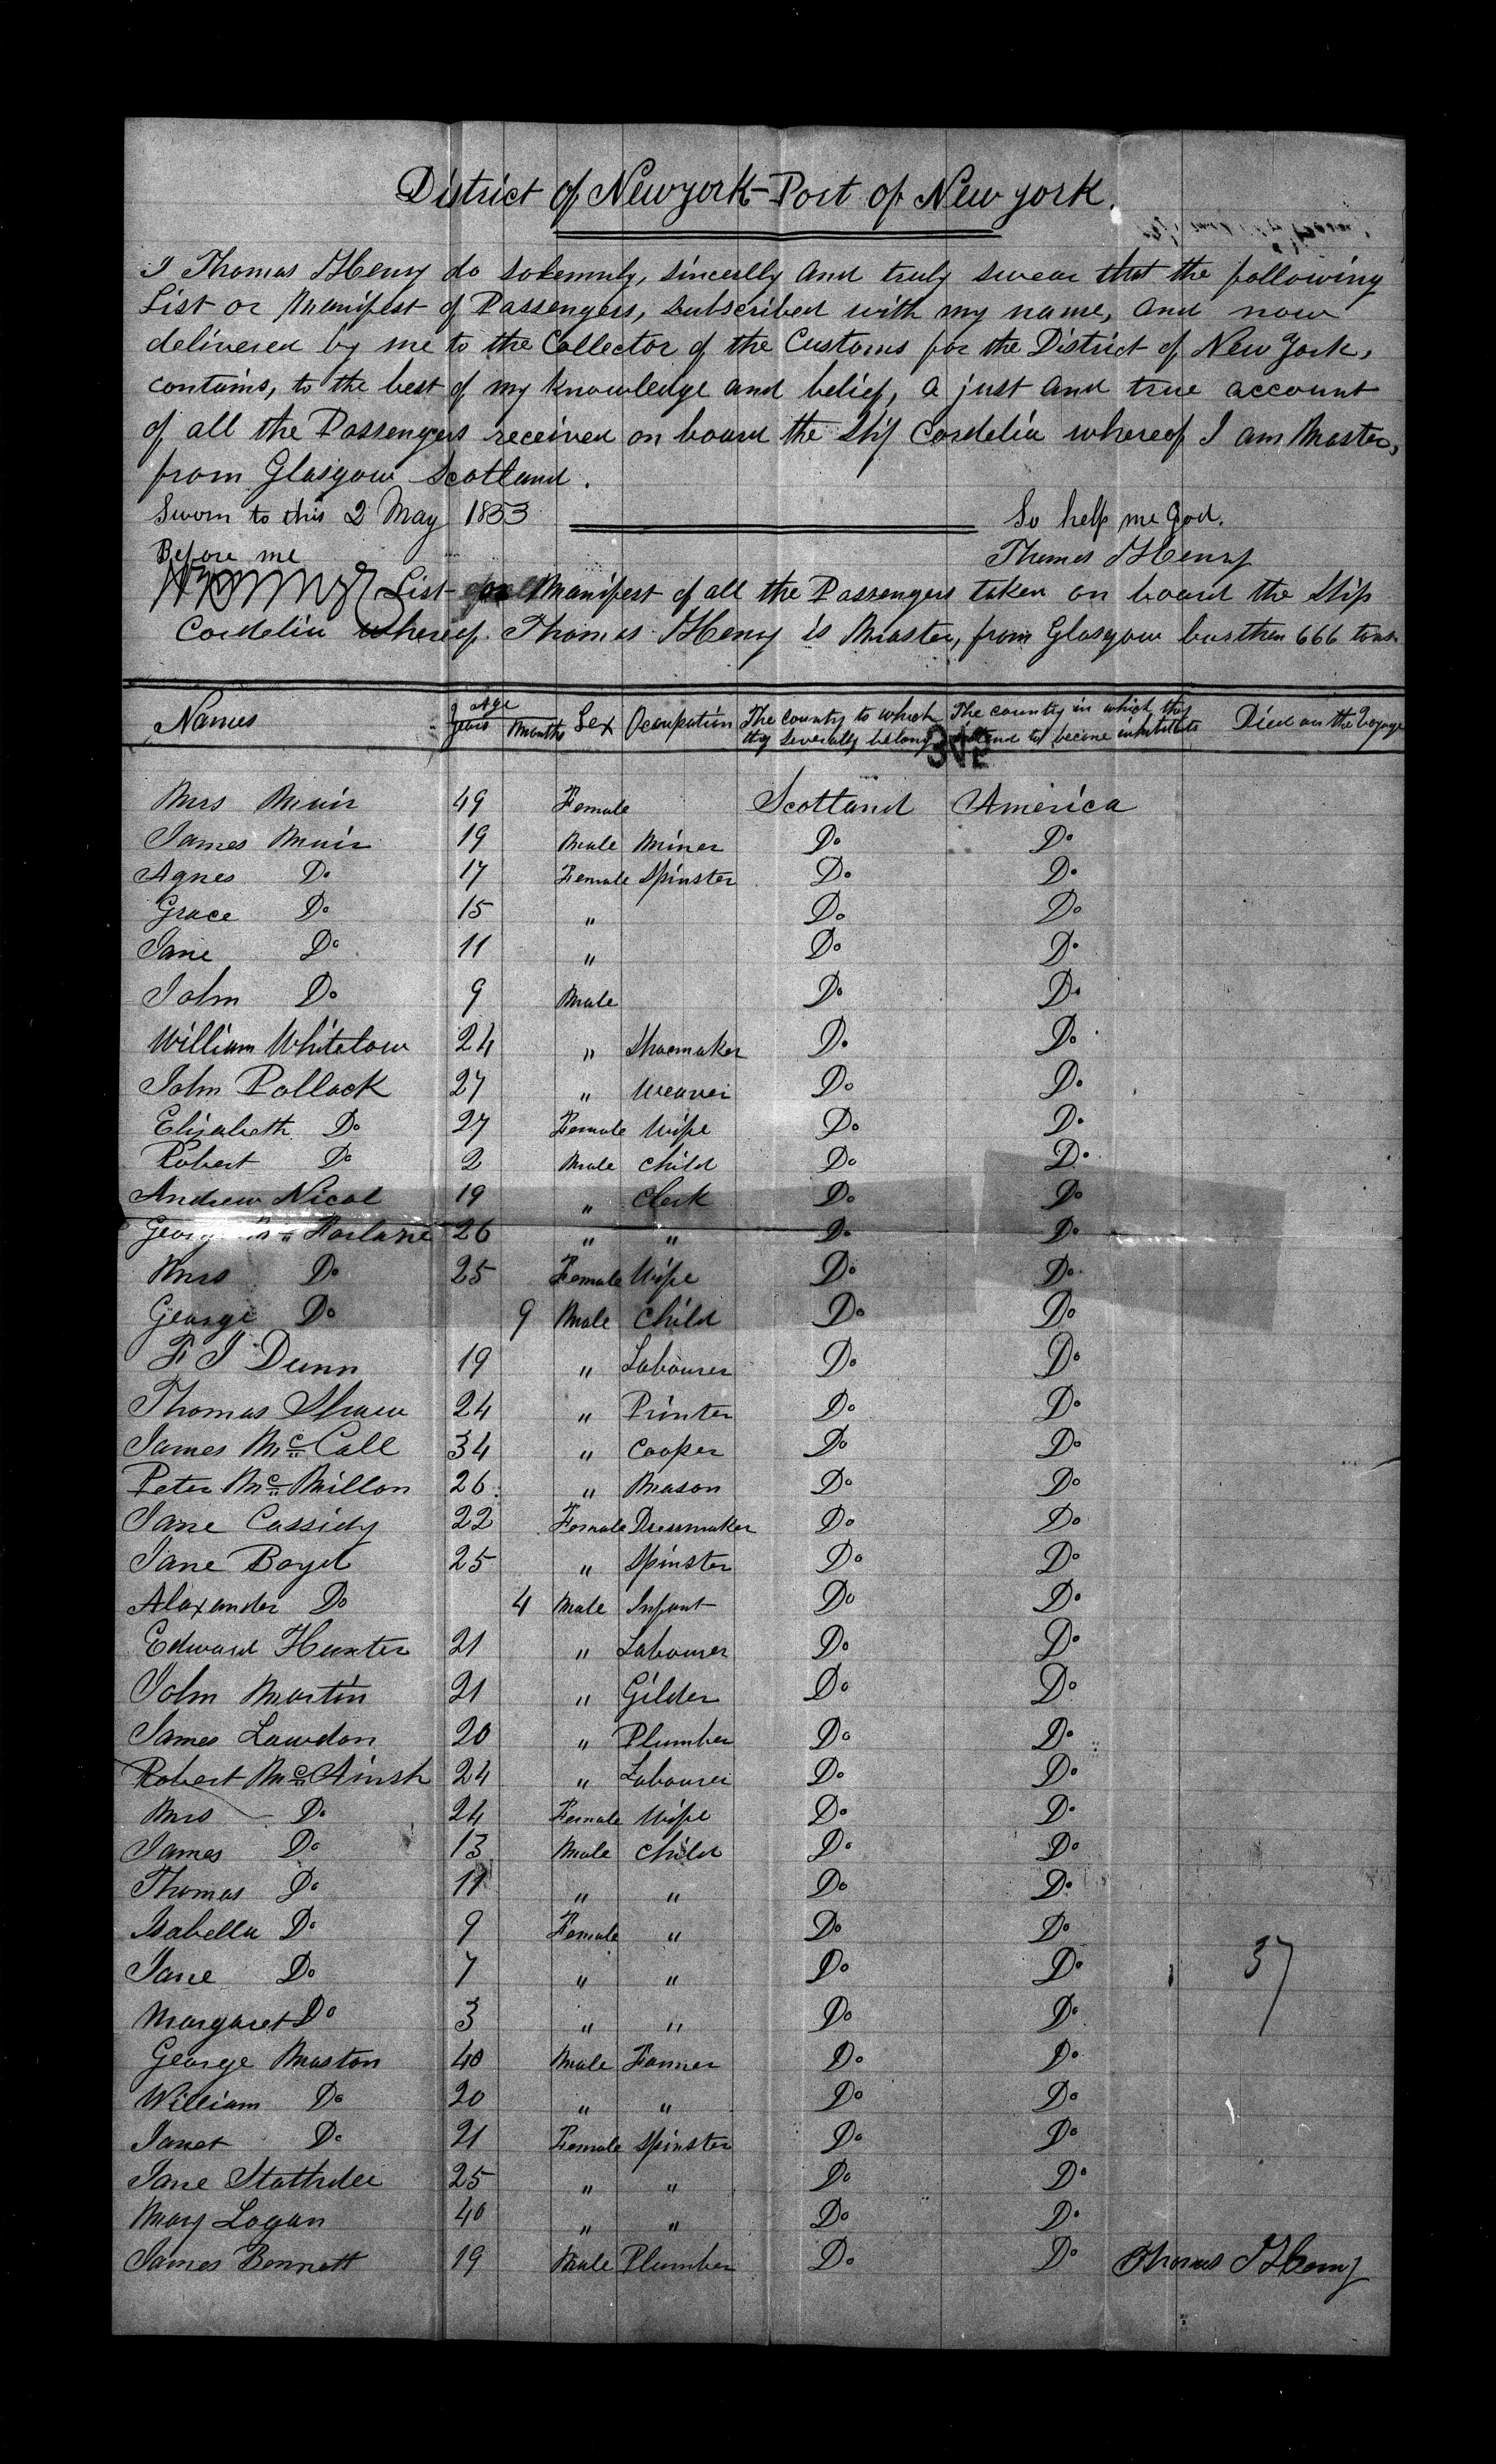 District of Newyork - Port of New york.
I Thomas J Henry do solemnly, sincerlly and truly swear that the following
List or Manifest of Passengers, subscribed with my name, and now
delivered by me to the Collector of the Customs for the District of New York,
contains, to the best of my knowledge and belief, a just and true account
of all the Passengers received on board the Ship Cordelia whereof I am Master,
from Glasgow Scotland.
Sworn to this 2 May 1853 So help me God.
Before me Thomas J Henry
List or Manifest of all the Passengers taken on board the Ship
Cordelia whereof Thomas J Henry is Master, from Glasgow burthen 666 tons
Names Age Years Months Sex Occupation The Country to which they severally belong The country in which they intend to become inhabitants Died on the Voyage
Mrs Muir 49 Female Scotland America
James Muir 19 Male Miner Do Do
Agnes Do 17 Female Spinster Do Do
Grace Do 15 " Do Do
Jane Do 11 " Do Do
John Do 9 Male Do Do
William Whitelow 24 " Shoemaker Do Do
John Pollock 27 " Weaver Do Do
Elizabeth Do 27 Female Wife Do Do
Robert Do 2 Male Child Do Do
Andrew Nicol 19 " Clerk Do Do
Farlane 26 " " Do Do
Mrs Do 25 Female Wife Do Do
George Do 9 Male Child Do Do
F J Dunn 19 " Labourer Do Do
Thomas Shaw 24 " Printer Do Do
James Mc Call 34 " Cooper Do Do
Peter Mc Millon 26 " Mason Do Do
Jane Cassidy 22 Female Dressmaker Do Do
Jane Boyd 25 " Spinster Do Do
Alexander Do 4 Male Infant Do Do
Edward Hunter 21 " Labourer Do Do
John Martin 21 " Gilder Do Do
James Lawdon 20 " Plumber Do Do
Robert Mc Ainsh 24 " Labourer Do Do
Mrs Do 24 Female Wife Do Do
James Do 13 Male Child Do Do
Thomas Do 11 " " Do Do
Isabella Do 9 Female " Do Do
Jane Do 7 " " Do Do 37
Margaret Do 3 " " Do Do
George Maston 40 Male Farmer Do Do
William Do 20 " " Do Do
Janet Do 21 Female Spinster Do Do
Jane 25 " " Do Do
Mary Logan 40 " " Do Do
James Bennett 19 Male Plumber Do Do Thomas J Henry